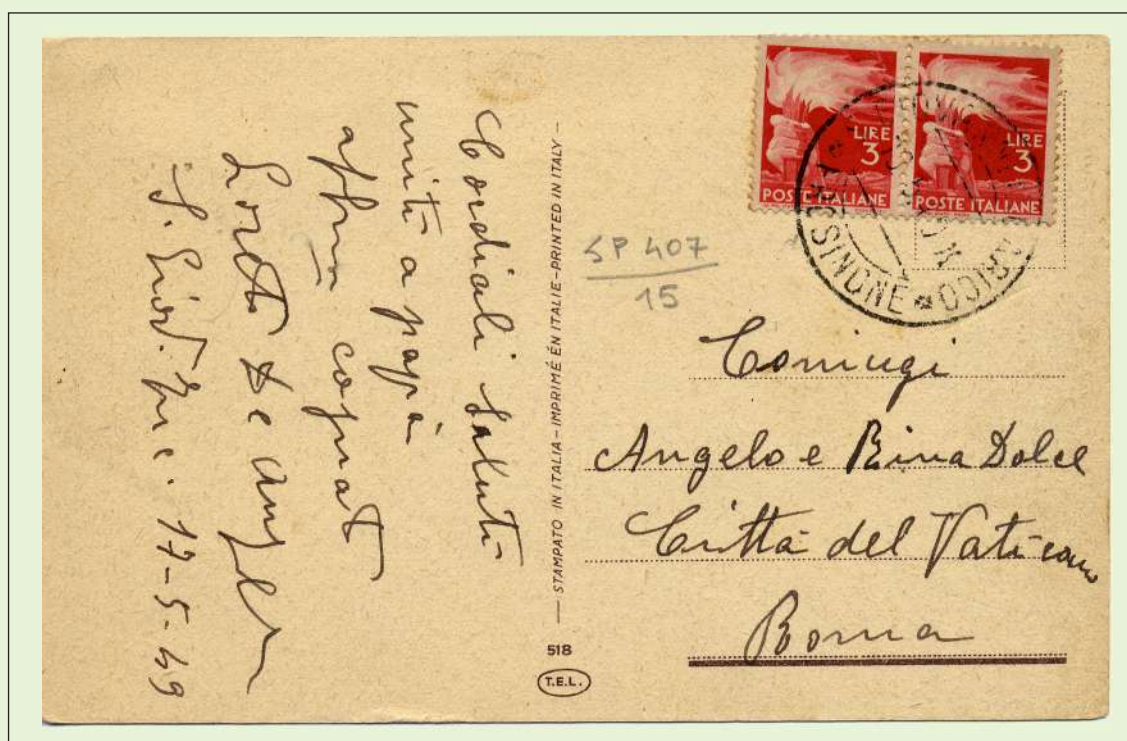 Cordiali saluti
uniti a papà
cognato
Loreto De Angelis
S. Giord. Inc. 17-5-49
STAMPATO IN ITALIA-IMPRIMÉ EN ITALIE-PRINTED IN ITALY
518
T.E.L.
SP 407
15
LIRE
3
POSTE ITALIANE
LIRE
3
POSTE ITALIANE
Coniugi
Angelo e Rina Dolce
Città del Vaticano
Roma